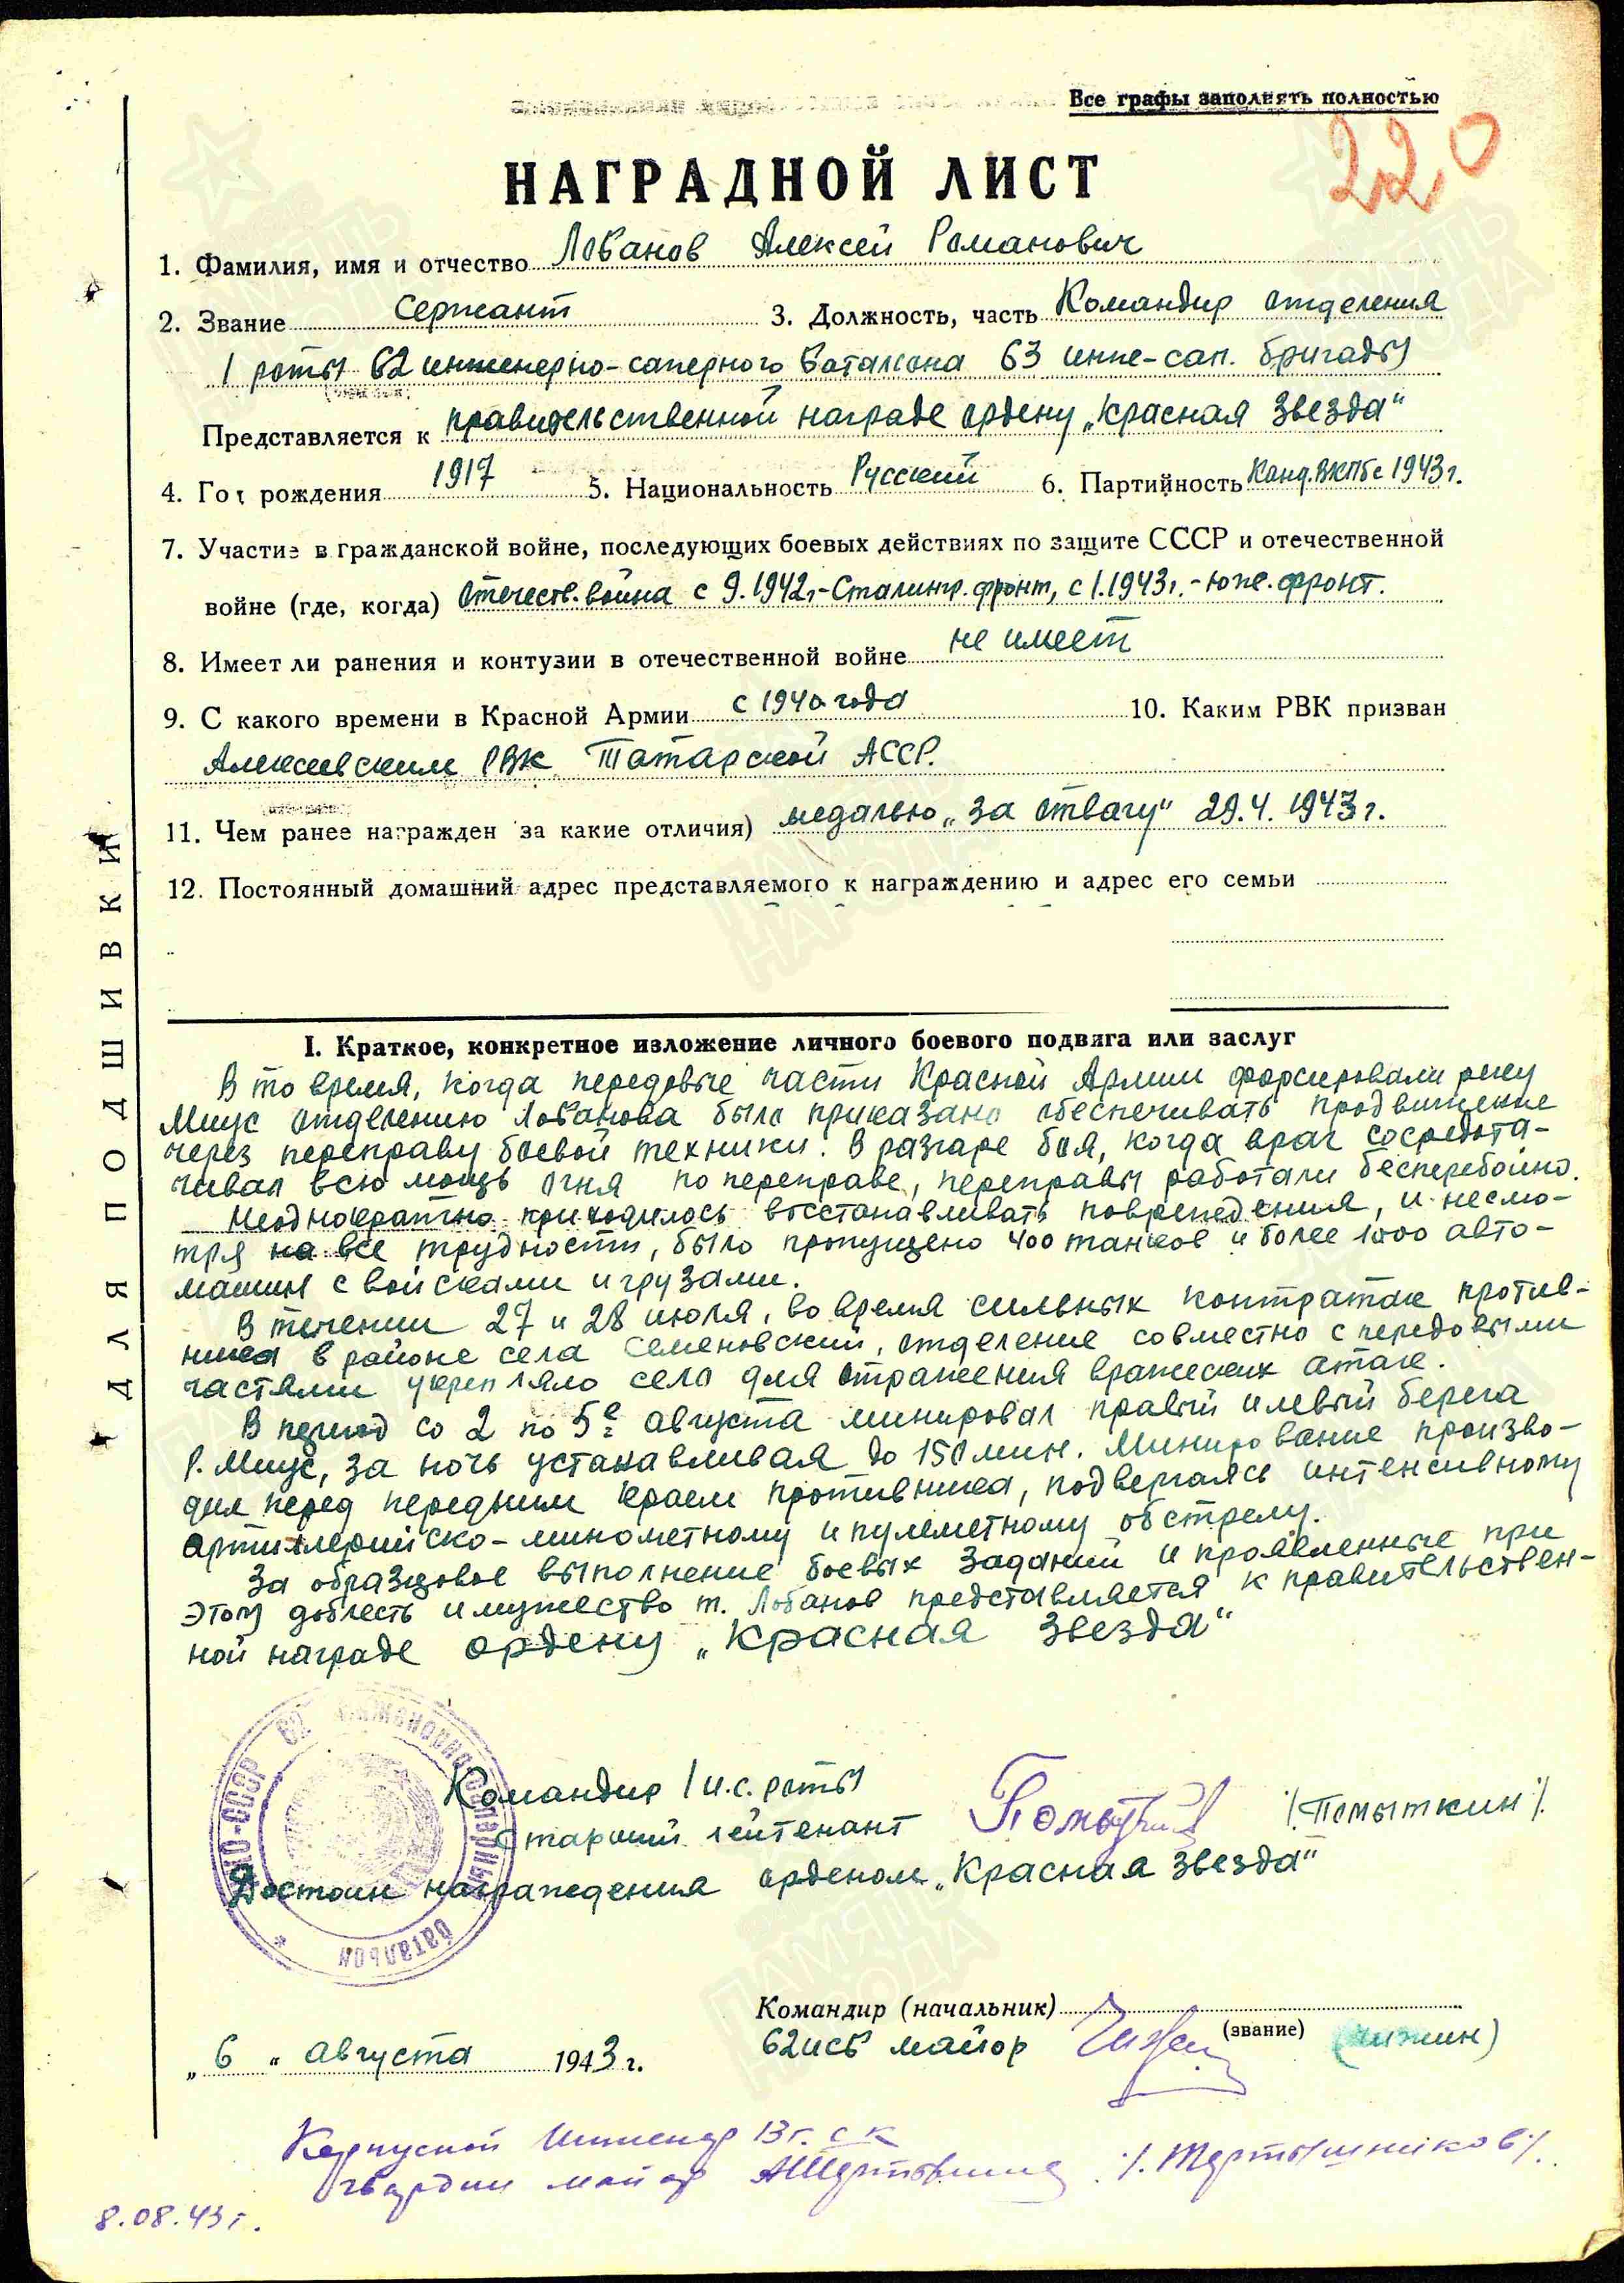 Все графы заполнять полностью
220
НАГРАДНОЙ ЛИСТ
1. Фамилия, имя и отчество Лобанов Алексей Романович
2. Звание Сержант 3. Должность, часть Командир отделения
1 роты 62 инженерно-саперного батальона 63 инже-сап. бригады
Представляется к правительственной награде ордену „Красная Звезда"
4. Год рождения 1917 5. Национальность Русский 6. Партийность Канд. ВКПб с 1943 г.
7. Участие в гражданской войне, последующих боевых действиях по защите СССР и отечественной
войне (где, когда) Отечеств. война с 9.1942г.-Сталингр. фронт, с 1.1943г.-юж. фронт.
8. Имеет ли ранения и контузии в отечественной войне не имеет
9. С какого времени в Красной Армии с 1940 года 10. Каким РВК призван
Алексеевским РВК Татарской АССР.
11. Чем ранее награжден за какие отличия) медалью „За отвагу" 29.4.1943г.
12. Постоянный домашний адрес представляемого к награждению и адрес его семьи
I. Краткое, конкретное изложение личного боевого подвига или заслуг
В то время, когда передовые части Красной Армии форсировали реку
Миус отделению Лобанова было приказано обеспечивать продвижение
через переправу боевой техники. В разгаре боя, когда враг сосредота-
чивал всю мощь огня по переправе, переправы работали бесперебойно.
Неоднократно приходилось восстанавливать повреждения, и несмо-
тря на все трудности, было пропущено 400 танков и более 1000 авто-
машин с войсками и грузами.
В течении 27 и 28 июля, во время сильных контратак против-
ника в районе села Семеновский, отделение совместно с передовыми
частями укрепляло село для отражения вражеских атак.
В период со 2 по 5е августа минировал правый и левый берега
р. Миус, за ночь устанавливая до 150 мин. Минирование произво-
дил перед передним краем противника, подвергаясь интенсивному
артиллерийско-минометному и пулеметному обстрелу.
За образцовое выполнение боевых заданий и проявленные при
этом доблесть и мужество т. Лобанов представляется к правительствен-
ной награде ордену „Красная Звезда"
Командир 1 и.с. роты
Старший лейтенант /Помыткин/.
Достоин награждения орденом „Красная Звезда"
НКО-СССР 62 инженерно-саперный батальон
Командир (начальник)
62исб майор (звание) (Чижин)
„ 6 " августа 1943 г.
Корпусной Инженер 13 г. с к
гвардии майор /. Мартышников /.
8.08.43 г.
ДЛЯ ПОДШИВКИ